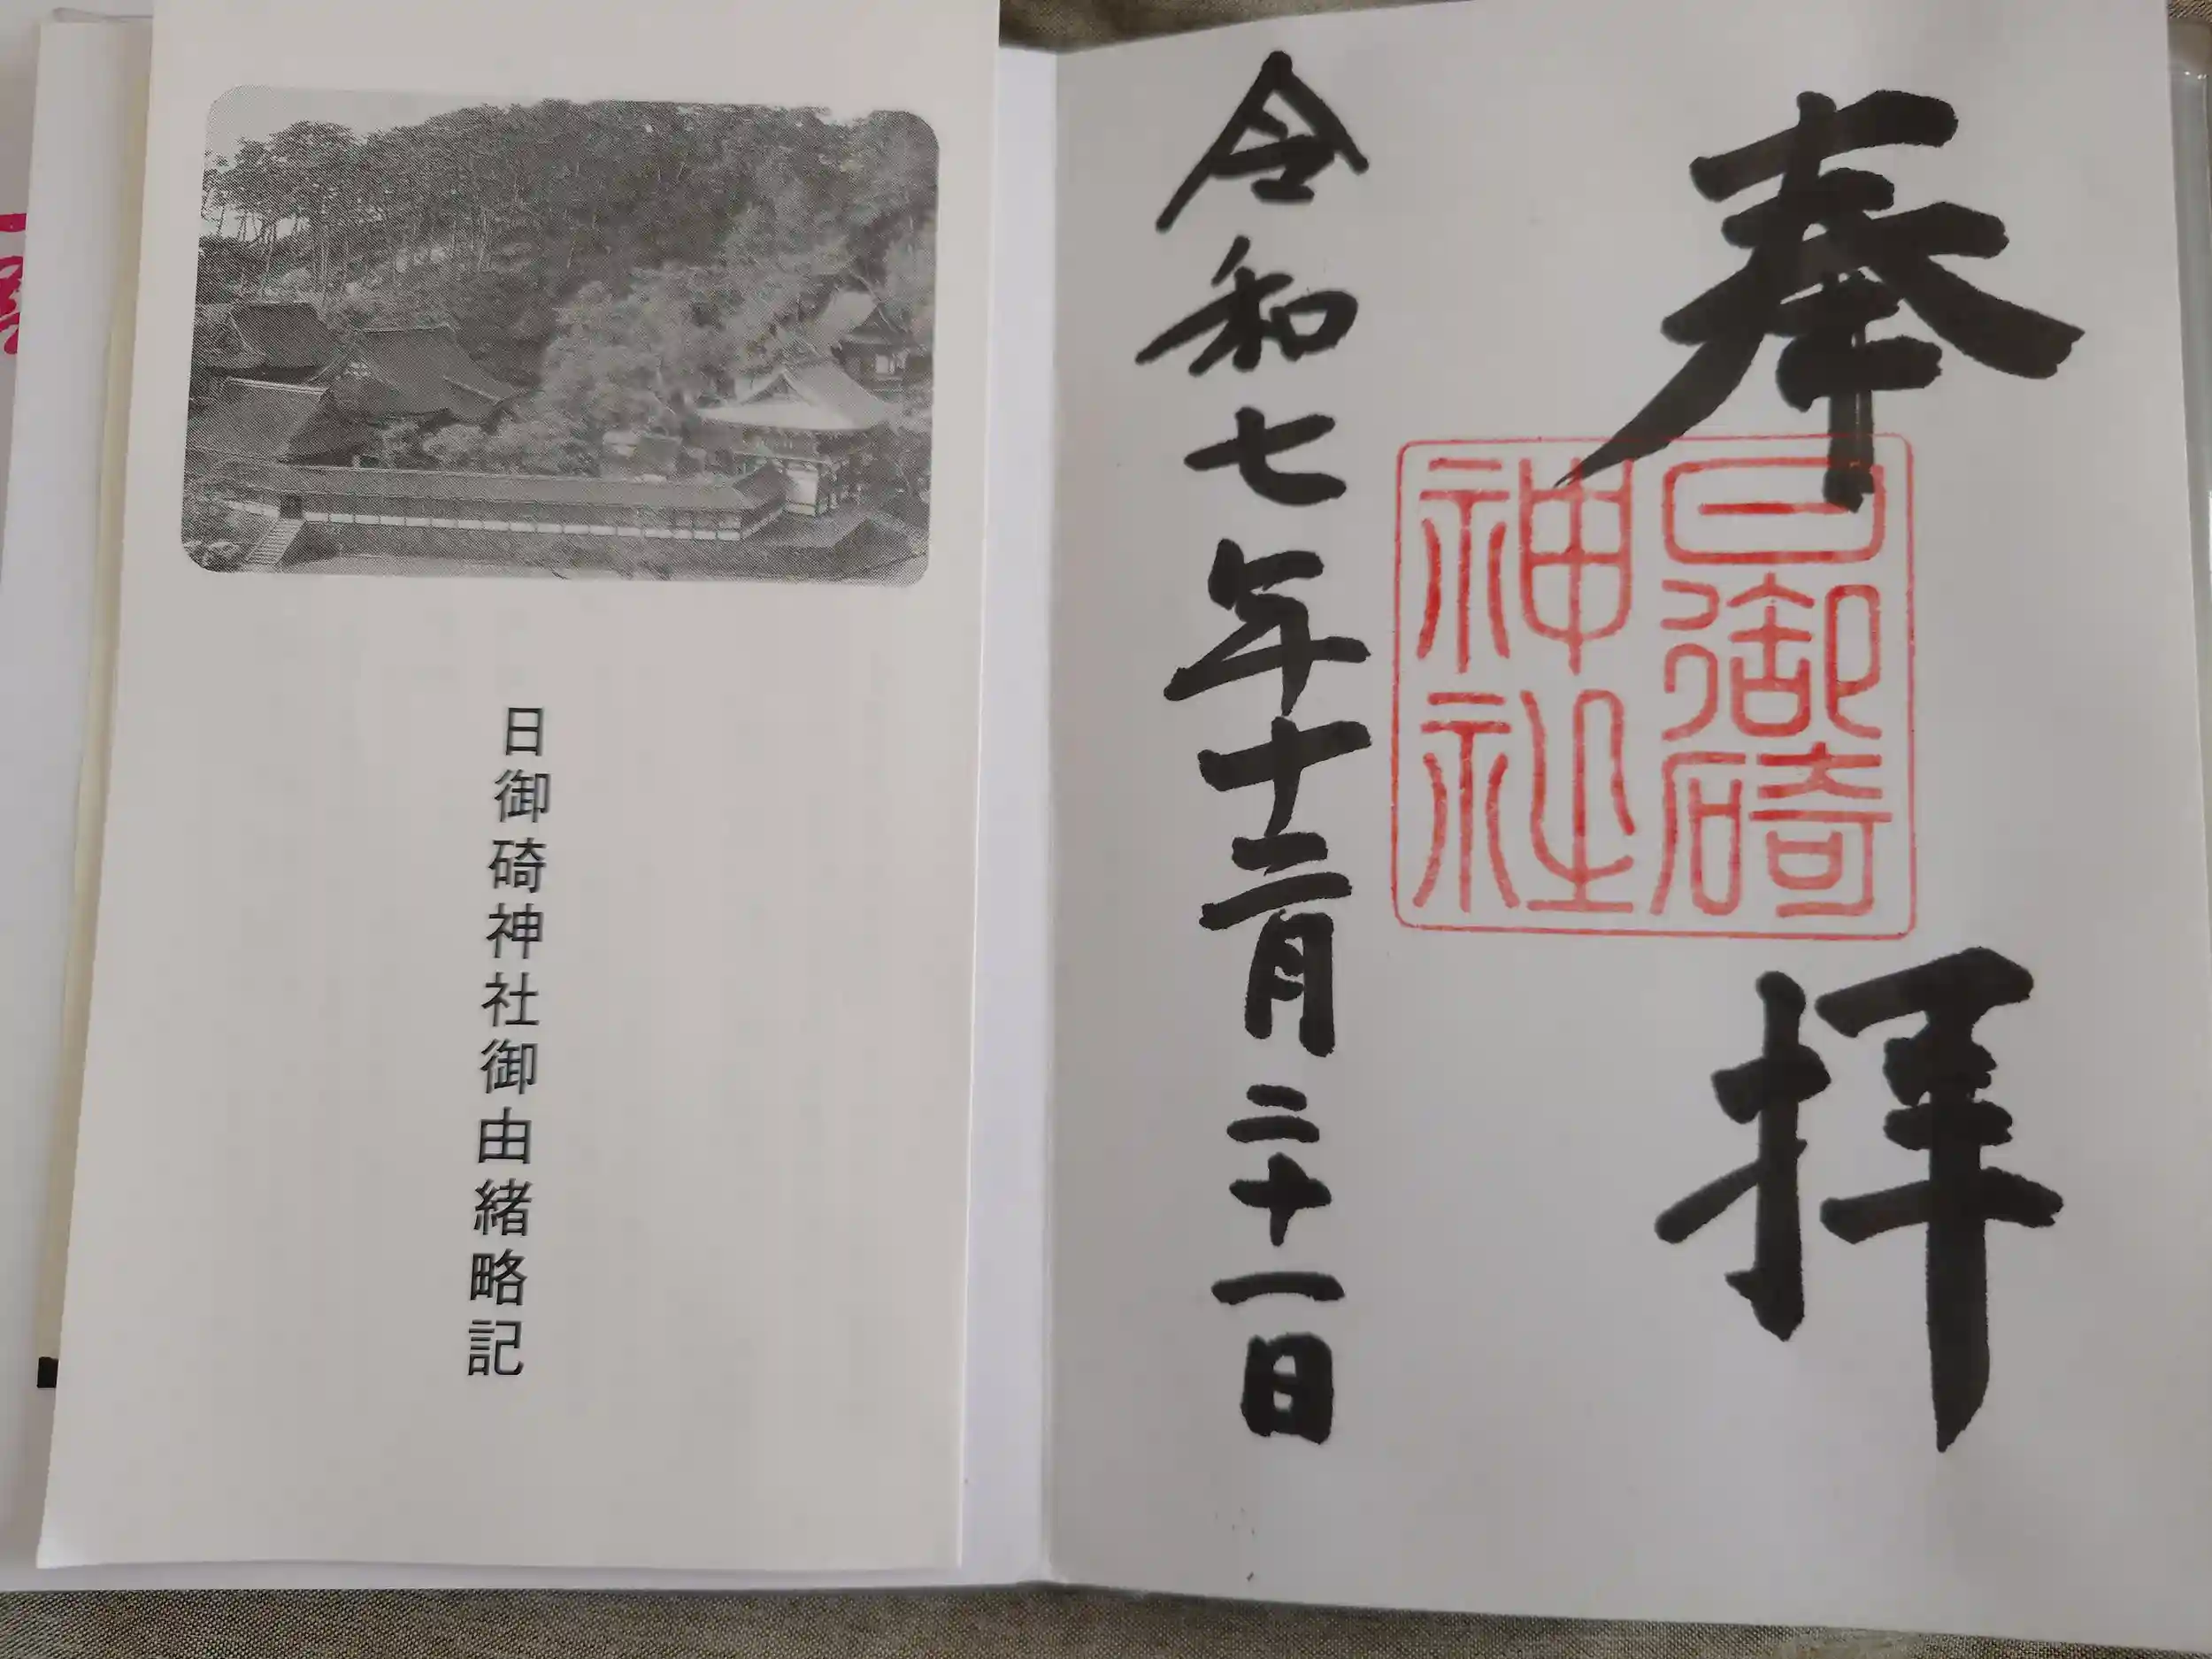 奉拝
日御碕
神社
令和七年十二月二十一日
日御碕神社御由緒略記